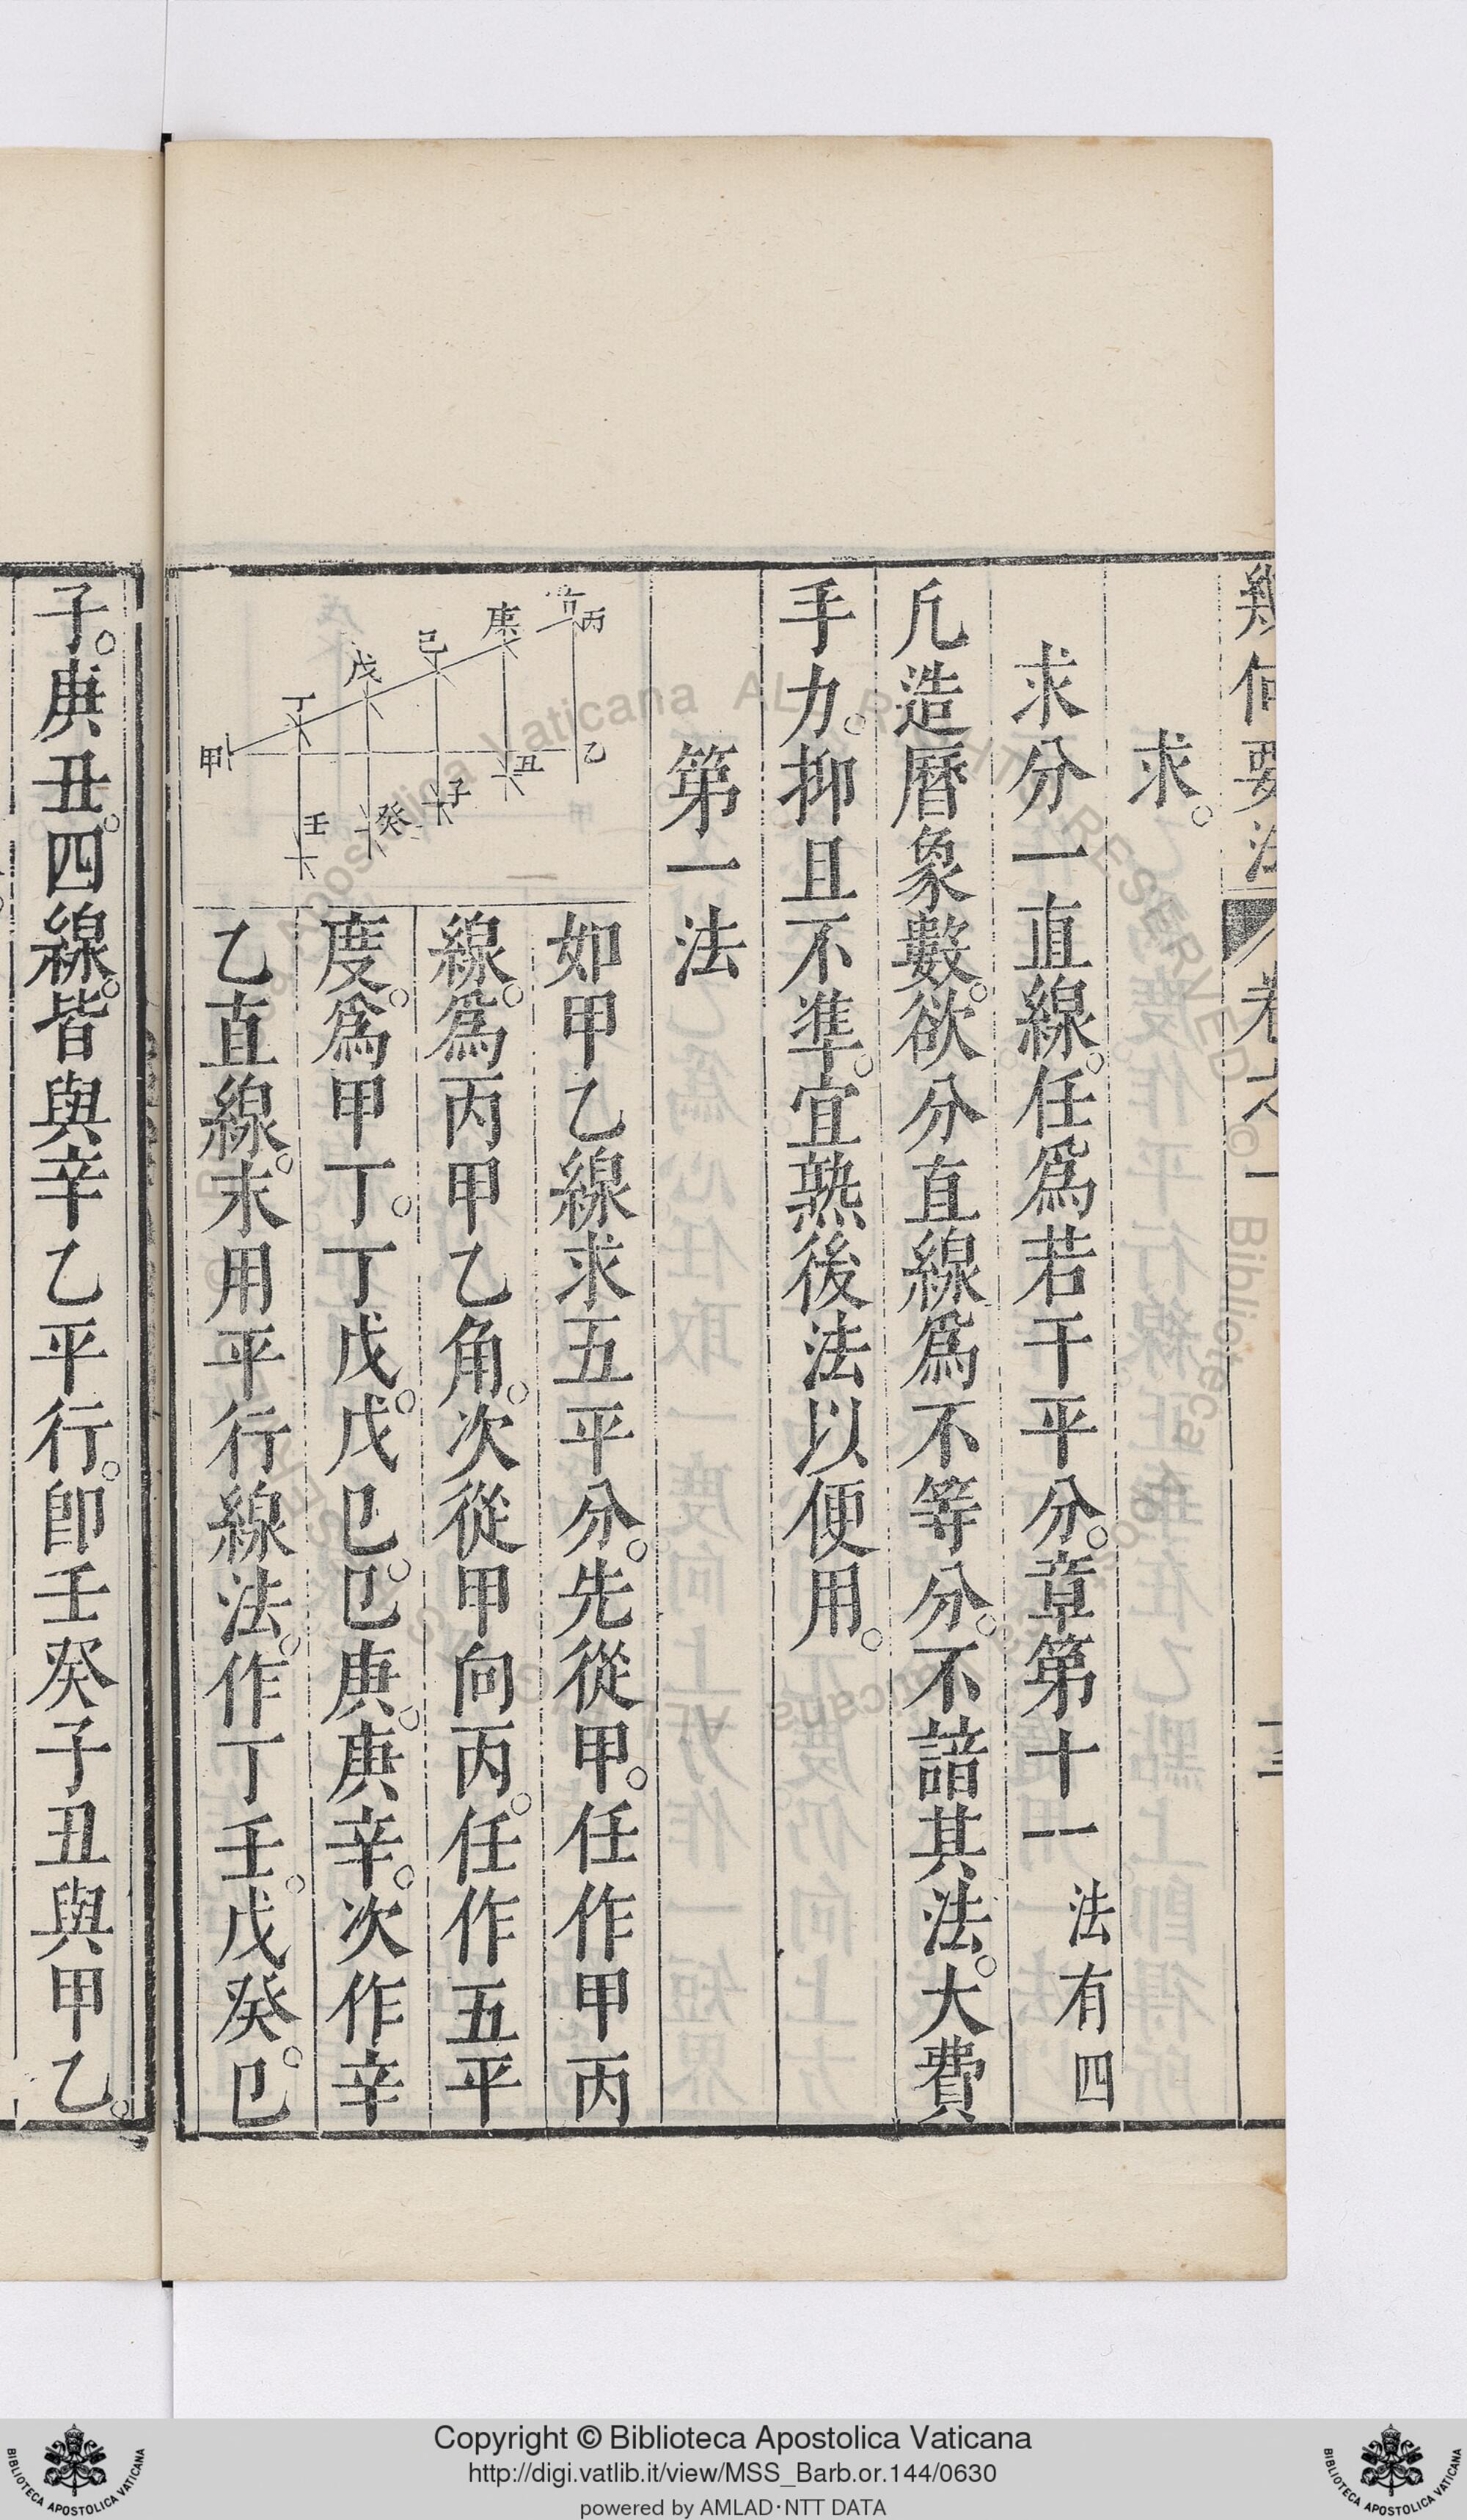 幾何要法 卷之一
求。
求分一直線。任爲若干平分。章第十一 法有四
凢造曆象數。欲分直線爲不等分。不諳其法。大費
手力。抑且不準。宜熟後法以便用。
第一法
如甲乙線求五平分。先從甲。任作甲丙
線。爲丙甲乙角。次從甲向丙。任作五平
度。爲甲丁。丁戊。戊巳。巳庚。庚辛。次作辛
乙直線。末用平行線法。作丁壬。戊癸。巳
丙
辛
庚
巳
戊
丁
甲
乙
丑
子
癸
壬
子。庚丑。四線。皆與辛乙平行。卽壬癸子丑與甲乙。
Copyright © Biblioteca Apostolica Vaticana
http://digi.vatlib.it/view/MSS_Barb.or.144/0630
powered by AMLAD·NTT DATA
BIBLIOTECA APOSTOLICA VATICANA
BIBLIOTECA APOSTOLICA VATICANA